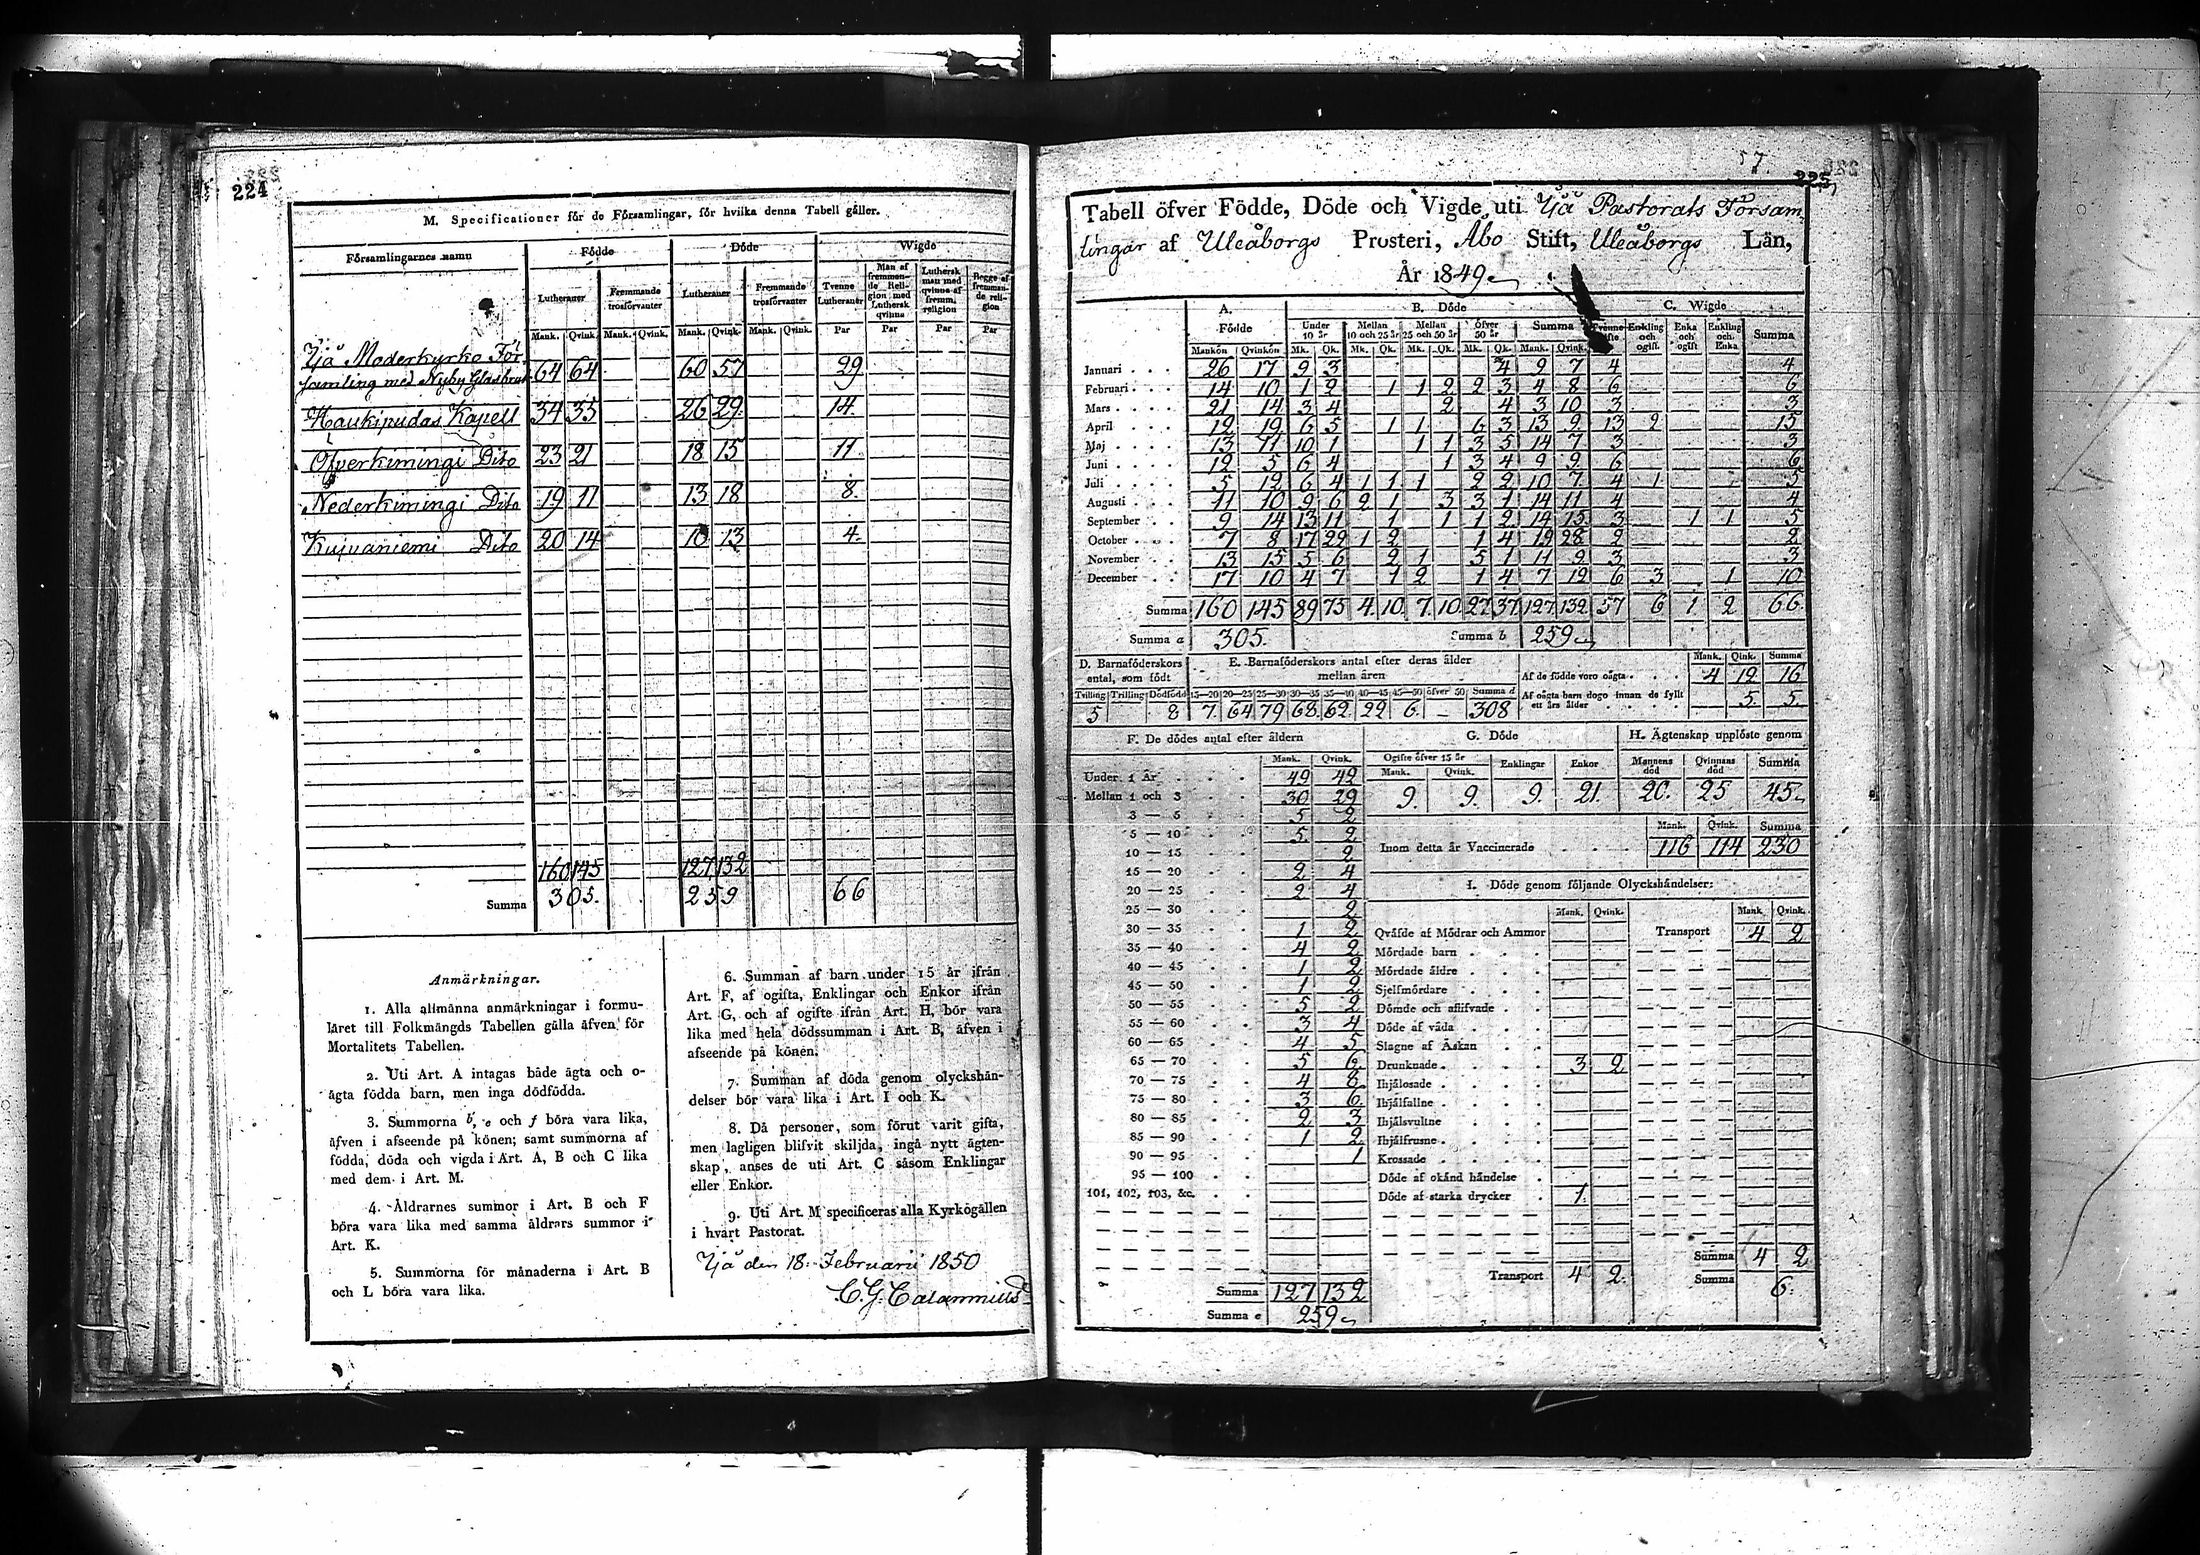 224
M. Specificationer för de Församlingar, för hvilka denna Tabell gäller.
Församlingarnes namn | Födde | Döde | Wigde
Lutheraner | Fremmande trosförvanter | Lutheraner | Fremmande trosförvanter | Tvenne Lutheraner | Man af fremmande Religion med Luthersk qvinna | Luthersk man med qvinna af fremm. religion | Begge af fremmande religion
Mank. Qvink. Mank. Qvink. Mank. Qvink. Mank. Qvink. Par Par Par Par
Ijå Moderkyrko För
samling med Nyby Glasbruk 64 64 60 57 29
Haukipudas Kapell 34 35 26 29 14
Öfverkimingi Dito 23 21 18 15 11
Nederkimingi Dito 19 11 13 18 8.
Kuivaniemi Dito 20 14 10 13 4.
160 145 127 132
Summa 305. 259 66
Anmärkningar.
1. Alla allmänna anmärkningar i formu-
läret till Folkmängds Tabellen gälla äfven för
Mortalitets Tabellen.
2. Uti Art. A intagas både ägta och o-
ägta födda barn, men inga dödfödda.
3. Summorna b, e och f böra vara lika,
äfven i afseende på könen; samt summorna af
födda, döda och vigda i Art. A, B och C lika
med dem i Art. M.
4. Åldrarnes summor i Art. B och F
böra vara lika med samma åldrars summor i
Art. K.
5. Summorna för månaderna i Art. B
och L böra vara lika.
6. Summan af barn under 15 år ifrån
Art. F, af ogifta, Enklingar och Enkor ifrån
Art. G, och af ogifte ifrån Art. H, bör vara
lika med hela dödssumman i Art. B, äfven i
afseende på könen.
7. Summan af döda genom olyckshän-
delser bör vara lika i Art. I och K.
8. Då personer, som förut varit gifta,
men lagligen blifvit skiljda, ingå nytt ägten-
skap, anses de uti Art. C såsom Enklingar
eller Enkor.
9. Uti Art. M specificeras alla Kyrkogällen
i hvart Pastorat.
Ijå den 18. Februarii 1850
C. G. Calamnius
57.
225
Tabell öfver Födde, Döde och Vigde uti Ijå Pastorats Försam
lingar af Uleåborgs Prosteri, Åbo Stift, Uleåborgs Län,
År 1849
A. Födde | B. Döde | C. Wigde
Under 10 år | Mellan 10 och 25 år | Mellan 25 och 50 år | Öfver 50 år | Summa | Tvenne ogifte | Enkling och ogift. | Enka och ogift | Enkling och Enka | Summa
Mankön Qvinkön Mk. Qk. Mk. Qk. Mk. Qk. Mk. Qk. Mank. Qvink.
Januari 26 17 9 3 4 9 7 4 4
Februari 14 10 1 2 1 1 2 2 3 4 8 6 6
Mars 21 14 3 4 2 4 3 10 3 3
April 12 19 6 5 1 1 6 3 13 9 13 2 15
Maj 13 11 10 1 1 1 3 5 14 7 3 3
Juni 12 5 6 4 1 3 4 9 9 6 6
Juli 5 12 6 4 1 1 1 2 2 10 7 4 1 5
Augusti 11 10 9 6 2 1 3 3 1 14 11 4 4
September 9 14 13 11 1 1 1 2 14 15 3 1 1 5
October 7 8 17 22 1 2 1 4 19 28 2 2
November 13 15 5 6 2 1 5 1 11 9 3 3
December 17 10 4 7 1 2 1 4 7 12 6 3 1 10
Summa 160 145 89 75 4 10 7 10 27 37 127 132 57 6 1 2 66
Summa a 305. Summa b 259
D. Barnaföderskors antal, som födt | E. Barnaföderskors antal efter deras ålder mellan åren | Mank. Qink. Summa
Af de födde voro oägta 4 12 16
Tvilling Trilling Dödfödd 15—20 20—25 25—30 30—35 35—40 40—45 45—50 öfver 50 Summa d
Af oägta barn dogo innan de fyllt ett års ålder 5. 5.
5 8 7. 64 79 68. 62. 22 6. — 308
F. De dödes antal efter åldern
Mank. Qvink.
Under 1 År 49 42
Mellan 1 och 3 30 29
3 — 5 5 2
5 — 10 5. 2
10 — 15 2
15 — 20 2 4
20 — 25 2 4
25 — 30 2
30 — 35 1 2
35 — 40 4 2
40 — 45 1 2
45 — 50 1 2
50 — 55 5 2
55 — 60 3 4
60 — 65 4 5
65 — 70 5 6
70 — 75 4 8
75 — 80 3 6.
80 — 85 2 3
85 — 90 1 2
90 — 95 1
95 — 100
101, 102, 103, &c.
Summa 127 132
Summa e 259
G. Döde | H. Ägtenskap upplöste genom
Ogifte öfver 15 år | Enklingar | Enkor | Mannens död | Qvinnans död | Summa
Mank. Qvink.
9. 9. 9. 21. 20. 25 45
Mank. Qvink. Summa
Inom detta år Vaccinerade 116 114 230
I. Döde genom följande Olyckshändelser:
Mank. Qvink. Mank. Qvink.
Qväfde af Mödrar och Ammor Transport 4 2
Mördade barn
Mördade äldre
Sjelfmördare
Dömde och aflifvade
Döde af våda
Slagne af Åskan
Drunknade 3 2
Ihjälosade
Ihjälfallne
Ihjälsvultne
Ihjälfrusne
Krossade
Döde af okänd händelse
Döde af starka drycker 1.
Summa 4 2
Transport 4 2. Summa 6.